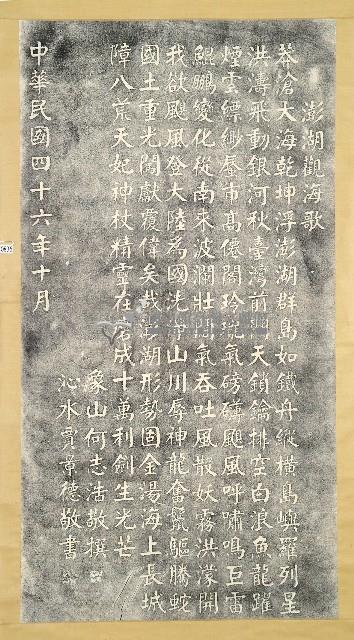 澎湖觀海歌
莽滄大海乾坤浮澎湖群島如鐵舟縱橫島嶼羅列星
洪濤飛動銀河秋臺灣前門天鎖鑰排空白浪魚龍躍
煙雲縹緲蜃市高僊閣玲瓏氣磅礴颶風呼嘯鳴巨雷
鯤鵬變化從南來波瀾壯闊氣吞吐風散妖霧洪濛開
我欲颶風登大陸為國洗淨山川辱神龍奮鬣驅騰蛇
國土重光闊獻覆偉矣哉澎湖形勢固金湯海上長城
障八荒天妃神杖精靈在磨成十萬利劍生光芒
象山何志浩敬撰
沁水賈景德敬書
中華民國四十六年十月